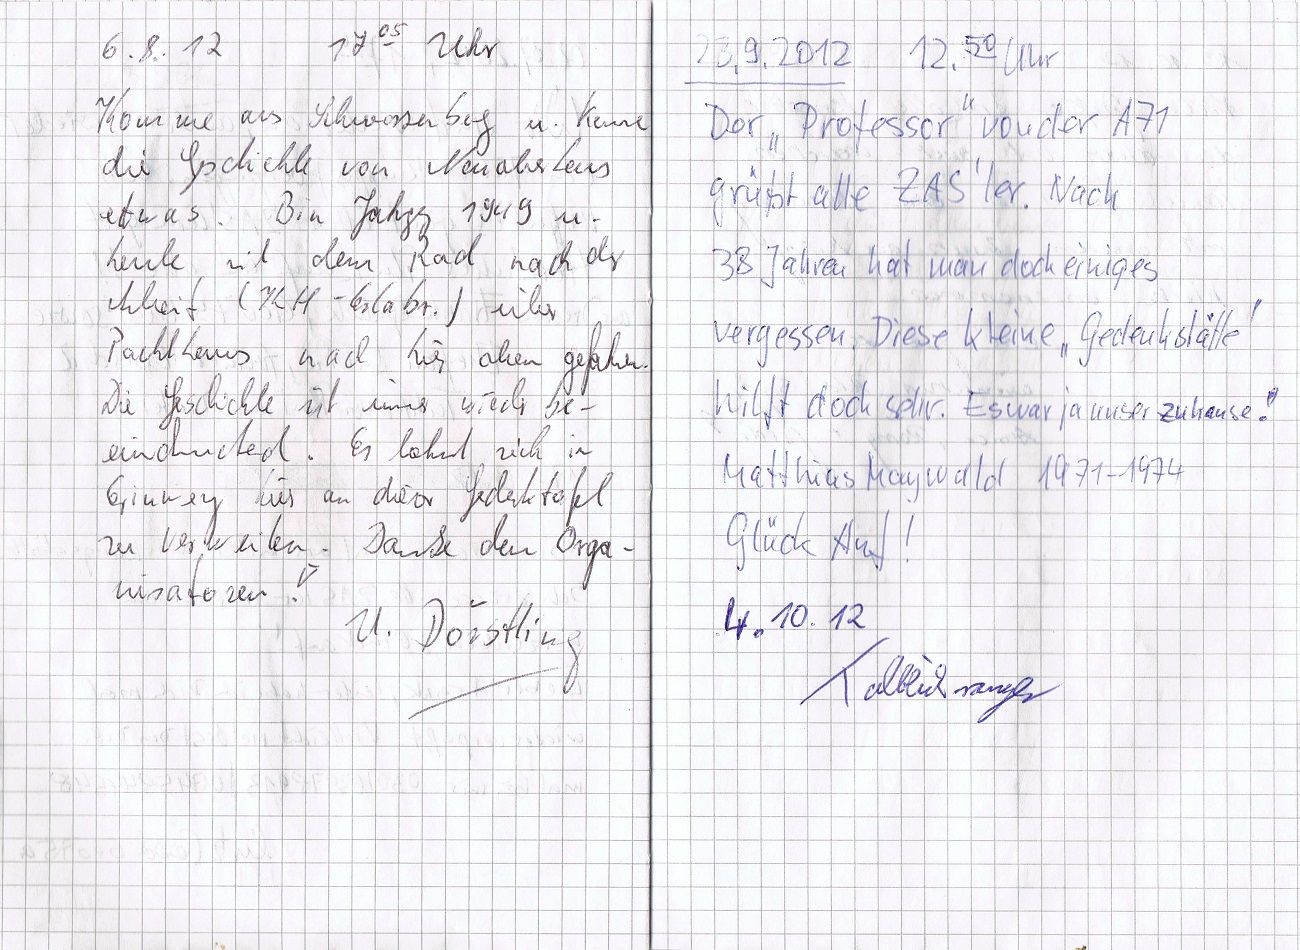 6.8.12 17⁰⁵ Uhr
Komme aus Schwarzenberg u. kenne
die Geschichte von
etwas. Bin Jahrg. 1949 u.
heute mit dem Rad nach der
Arbeit (KH-Erlabr.) über
nach hier oben gefahren.
Die Geschichte ist immer wieder be-
eindruckend. Es lohnt sich in
Erinnerung hier an dieser Gedenktafel
zu verweilen. Danke den Orga-
nisatoren!
U. Dörstling
23.9.2012 12.⁵⁰ Uhr
Der „Professor" von der A71
grüßt alle ZAS'ler. Nach
38 Jahren hat man doch einiges
vergessen. Diese kleine „Gedenkstätte'
hilft doch sehr. Es war ja unser zuhause!
Matthias Maywald 1971-1974
Glück Auf!
4.10.12